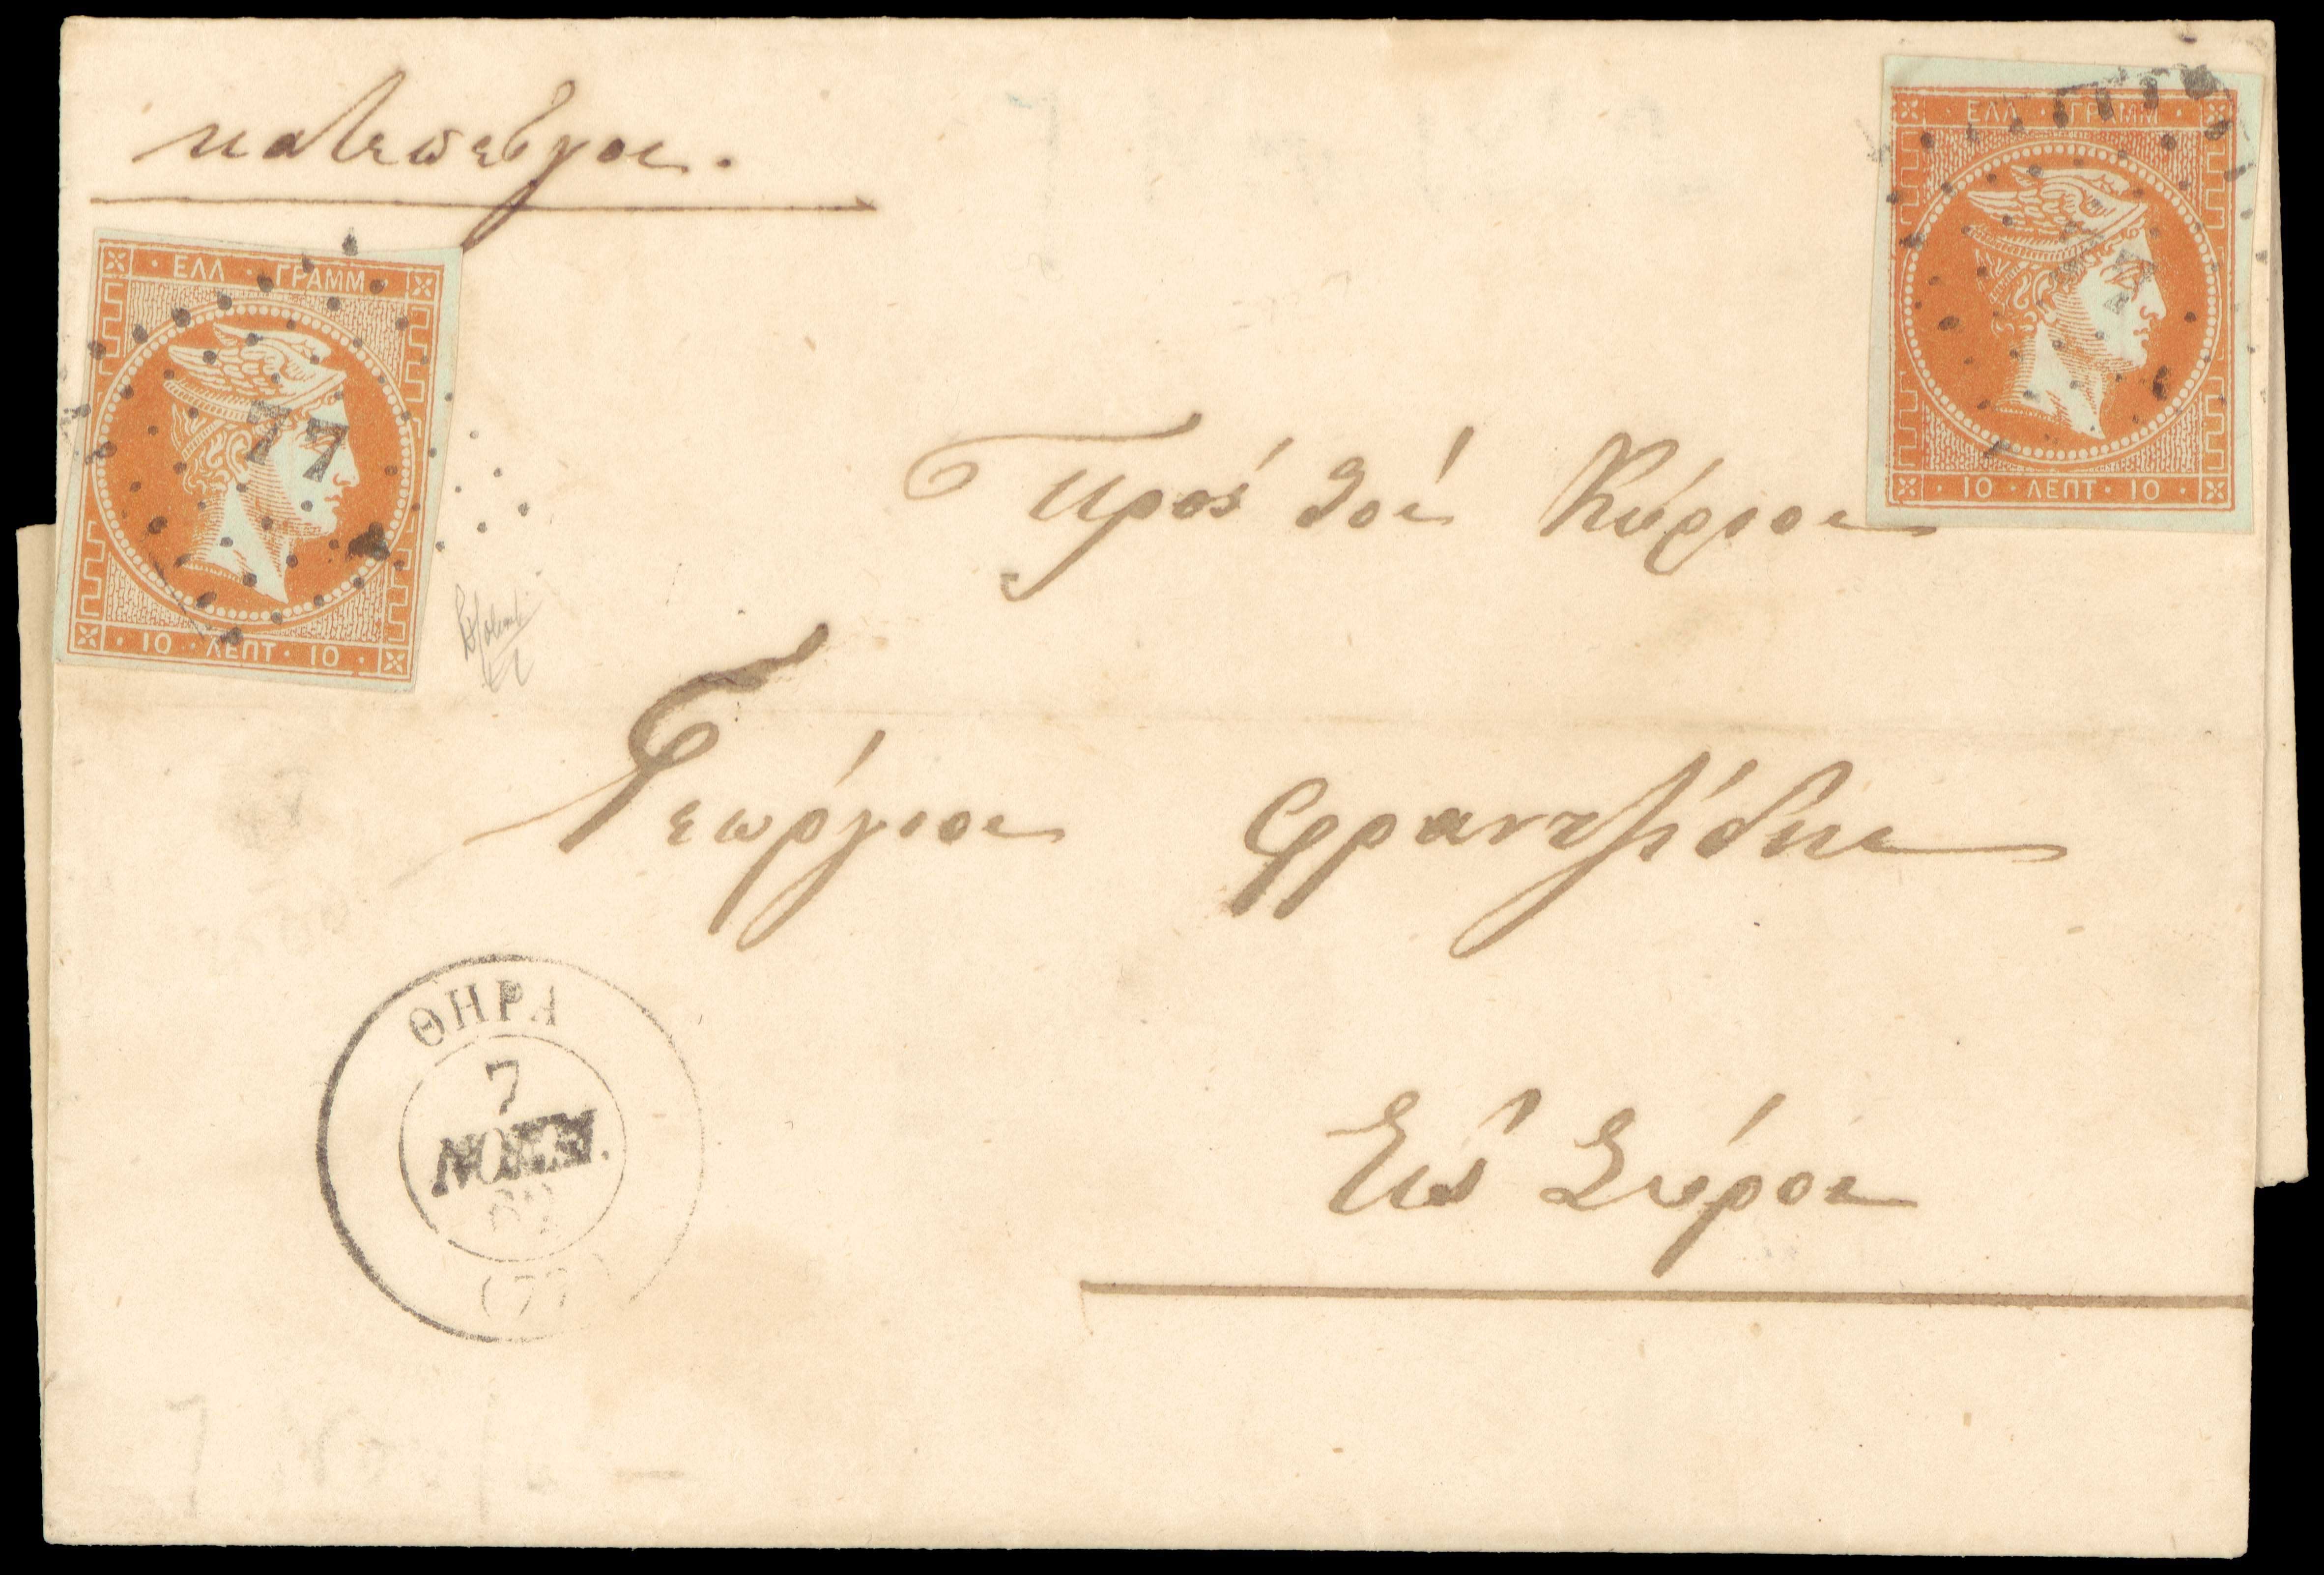 κατεπεῖγον.
ΕΛΛ · ΓΡΑΜΜ
77
10 · ΛΕΠΤ · 10
ΕΛΛ · ΓΡΑΜΜ
10 · ΛΕΠΤ · 10
Πρὸς τὸν Κύριον
Γεώργιον Φραντζίδην
Εἰς Σύρον
ΘΗΡΑ
7
ΝΟΕΜ.
62
(77)